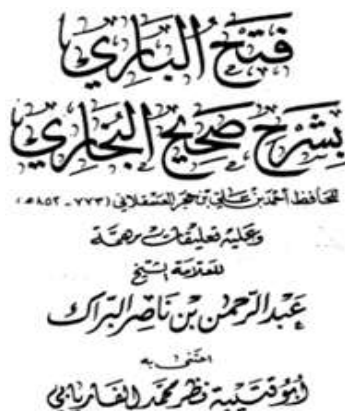 فتح الباري
بشرح صحيح البخاري
للحافظ أحمد بن علي بن حجر العسقلاني (٧٧٣ - ٨٥٢ هـ)
وعليه تعليقات مهمة
للعلامة الشيخ
عبد الرحمن بن ناصر البراك
اعتنى به
أبو قتيبة نظر محمد الفاريابي